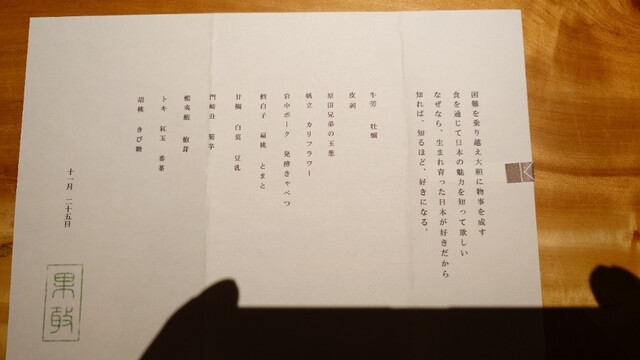 困難を乗り越え大胆に物事を成す
食を通じて日本の魅力を知って欲しい
なぜなら、生まれ育った日本が好きだから
知れば、知るほど、好きになる。
牛蒡 牡蠣
皮剥
原田兄弟の玉葱
帆立 カリフラワー
岩中ポーク 発酵きゃべつ
鱈白子 扁桃 とまと
甘鯛 白菜 豆乳
門崎丑 菊芋
蝦夷鮑
トキ 紅玉 番茶
胡桃 きび糖
十一月 二十五日
果敢